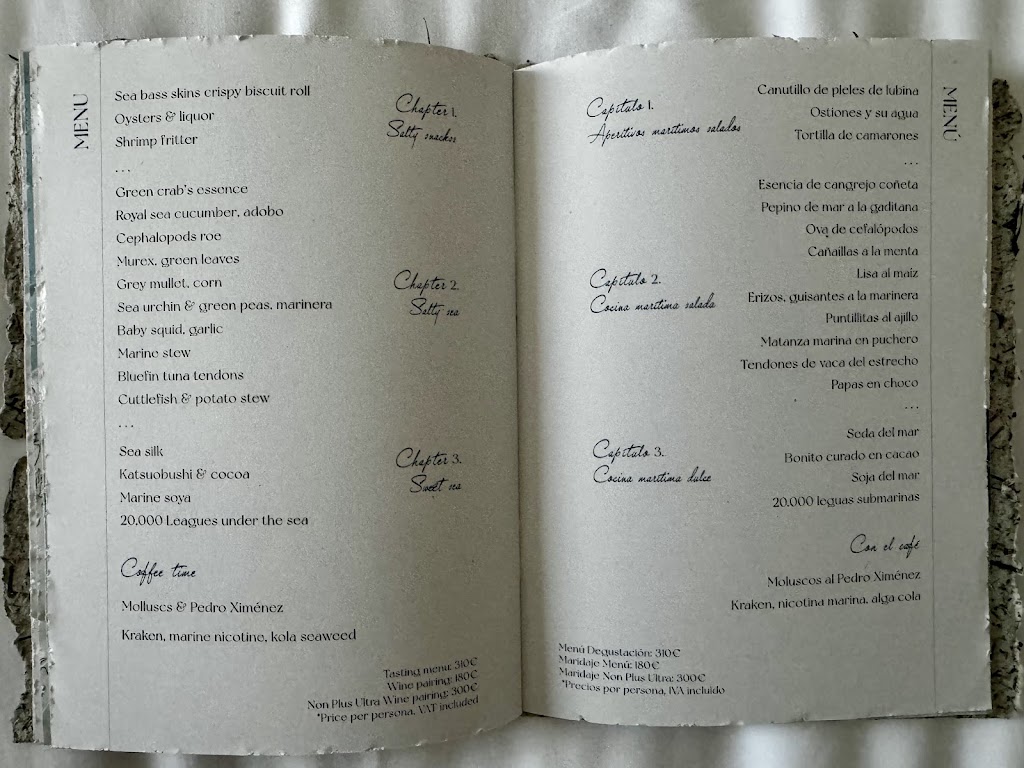 MENU
Sea bass skins crispy biscuit roll
Oysters & liquor
Shrimp fritter
Chapter 1.
Salty snacks
...
Green crab's essence
Royal sea cucumber, adobo
Cephalopods roe
Murex, green leaves
Grey mullet, corn
Sea urchin & green peas, marinera
Baby squid, garlic
Marine stew
Bluefin tuna tendons
Cuttlefish & potato stew
Chapter 2.
Salty sea
...
Sea silk
Katsuobushi & cocoa
Marine soya
20.000 Leagues under the sea
Chapter 3.
Sweet sea
Coffee time
Molluscs & Pedro Ximénez
Kraken, marine nicotine, kola seaweed
Tasting menu: 310€
Wine pairing: 180€
Non Plus Ultra Wine pairing: 300€
*Price per person, VAT included
MENÚ
Capítulo 1.
Aperitivos marítimos salados
Canutillo de pieles de lubina
Ostiones y su agua
Tortilla de camarones
...
Esencia de cangrejo coñeta
Pepino de mar a la gaditana
Ova de cefalópodos
Cañaillas a la menta
Lisa al maíz
Erizos, guisantes a la marinera
Puntillitas al ajillo
Matanza marina en puchero
Tendones de vaca del estrecho
Papas en choco
Capítulo 2.
Cocina marítima salada
...
Seda del mar
Bonito curado en cacao
Soja del mar
20.000 leguas submarinas
Capítulo 3.
Cocina marítima dulce
Con el café
Moluscos al Pedro Ximénez
Kraken, nicotina marina, alga cola
Menú Degustación: 310€
Maridaje Menú: 180€
Maridaje Non Plus Ultra: 300€
*Precios por persona, IVA incluido